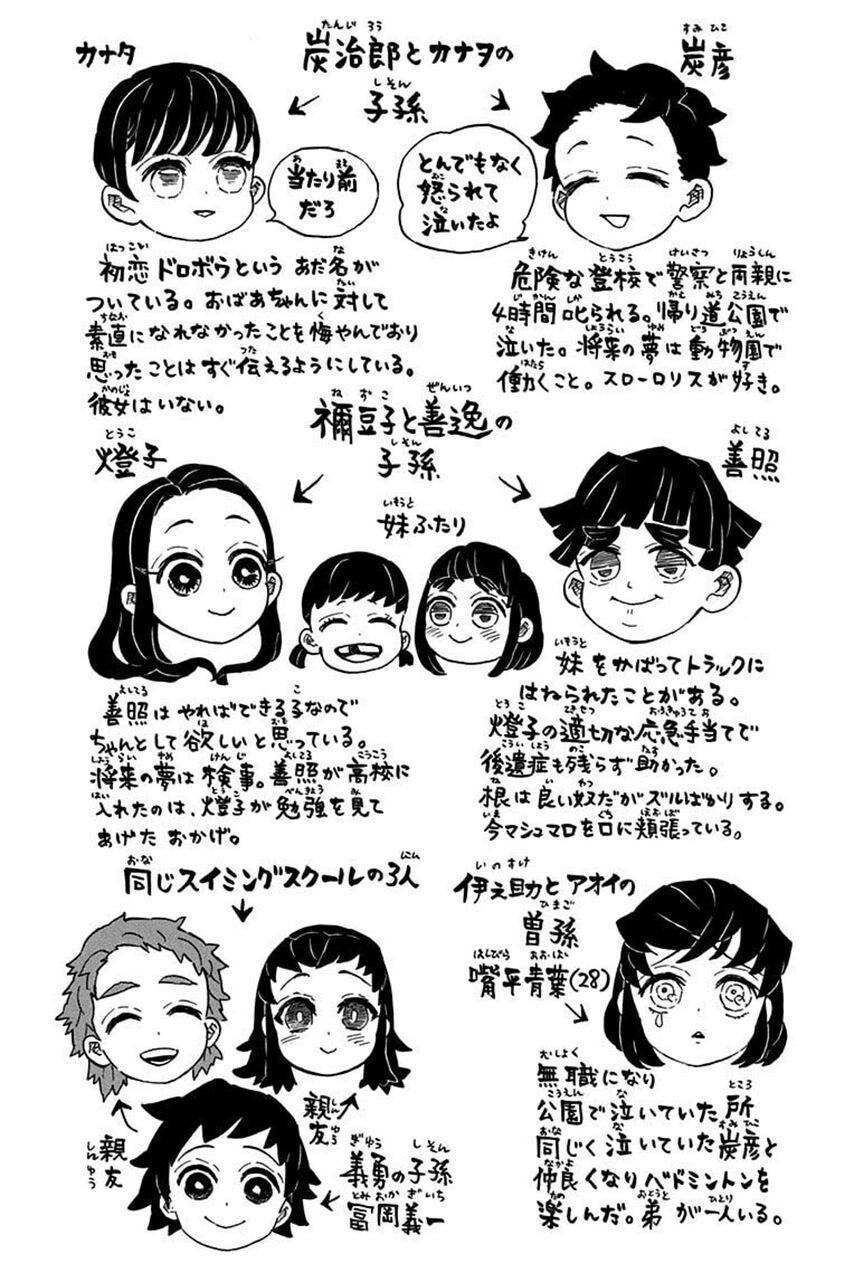 カナタ
炭治郎とカナヲの
子孫
炭彦
当たり前
だろ
とんでもなく
怒られて
泣いたよ
初恋ドロボウというあだ名が
ついている。おばあちゃんに対して
素直になれなかったことを悔やんでおり
思ったことはすぐ伝えるようにしている。
彼女はいない。
危険な登校で警察と両親に
4時間叱られる。帰り道公園で
泣いた。将来の夢は動物園で
働くこと。スローロリスが好き。
禰豆子と善逸の
子孫
燈子
妹ふたり
善照
善照はやればできる子なので
ちゃんとして欲しいと思っている。
将来の夢は検事。善照が高校に
入れたのは、燈子が勉強を見て
あげたおかげ。
妹をかばってトラックに
はねられたことがある。
燈子の適切な応急手当てで
後遺症も残らず助かった。
根は良い奴だがズルばかりする。
今マシュマロを口に頬張っている。
同じスイミングスクールの3人
親友
親友
義勇の子孫
冨岡義一
伊之助とアオイの
曽孫
嘴平青葉(28)
無職になり
公園で泣いていた所
同じく泣いていた炭彦と
仲良くなりバドミントンを
楽しんだ。弟が一人いる。